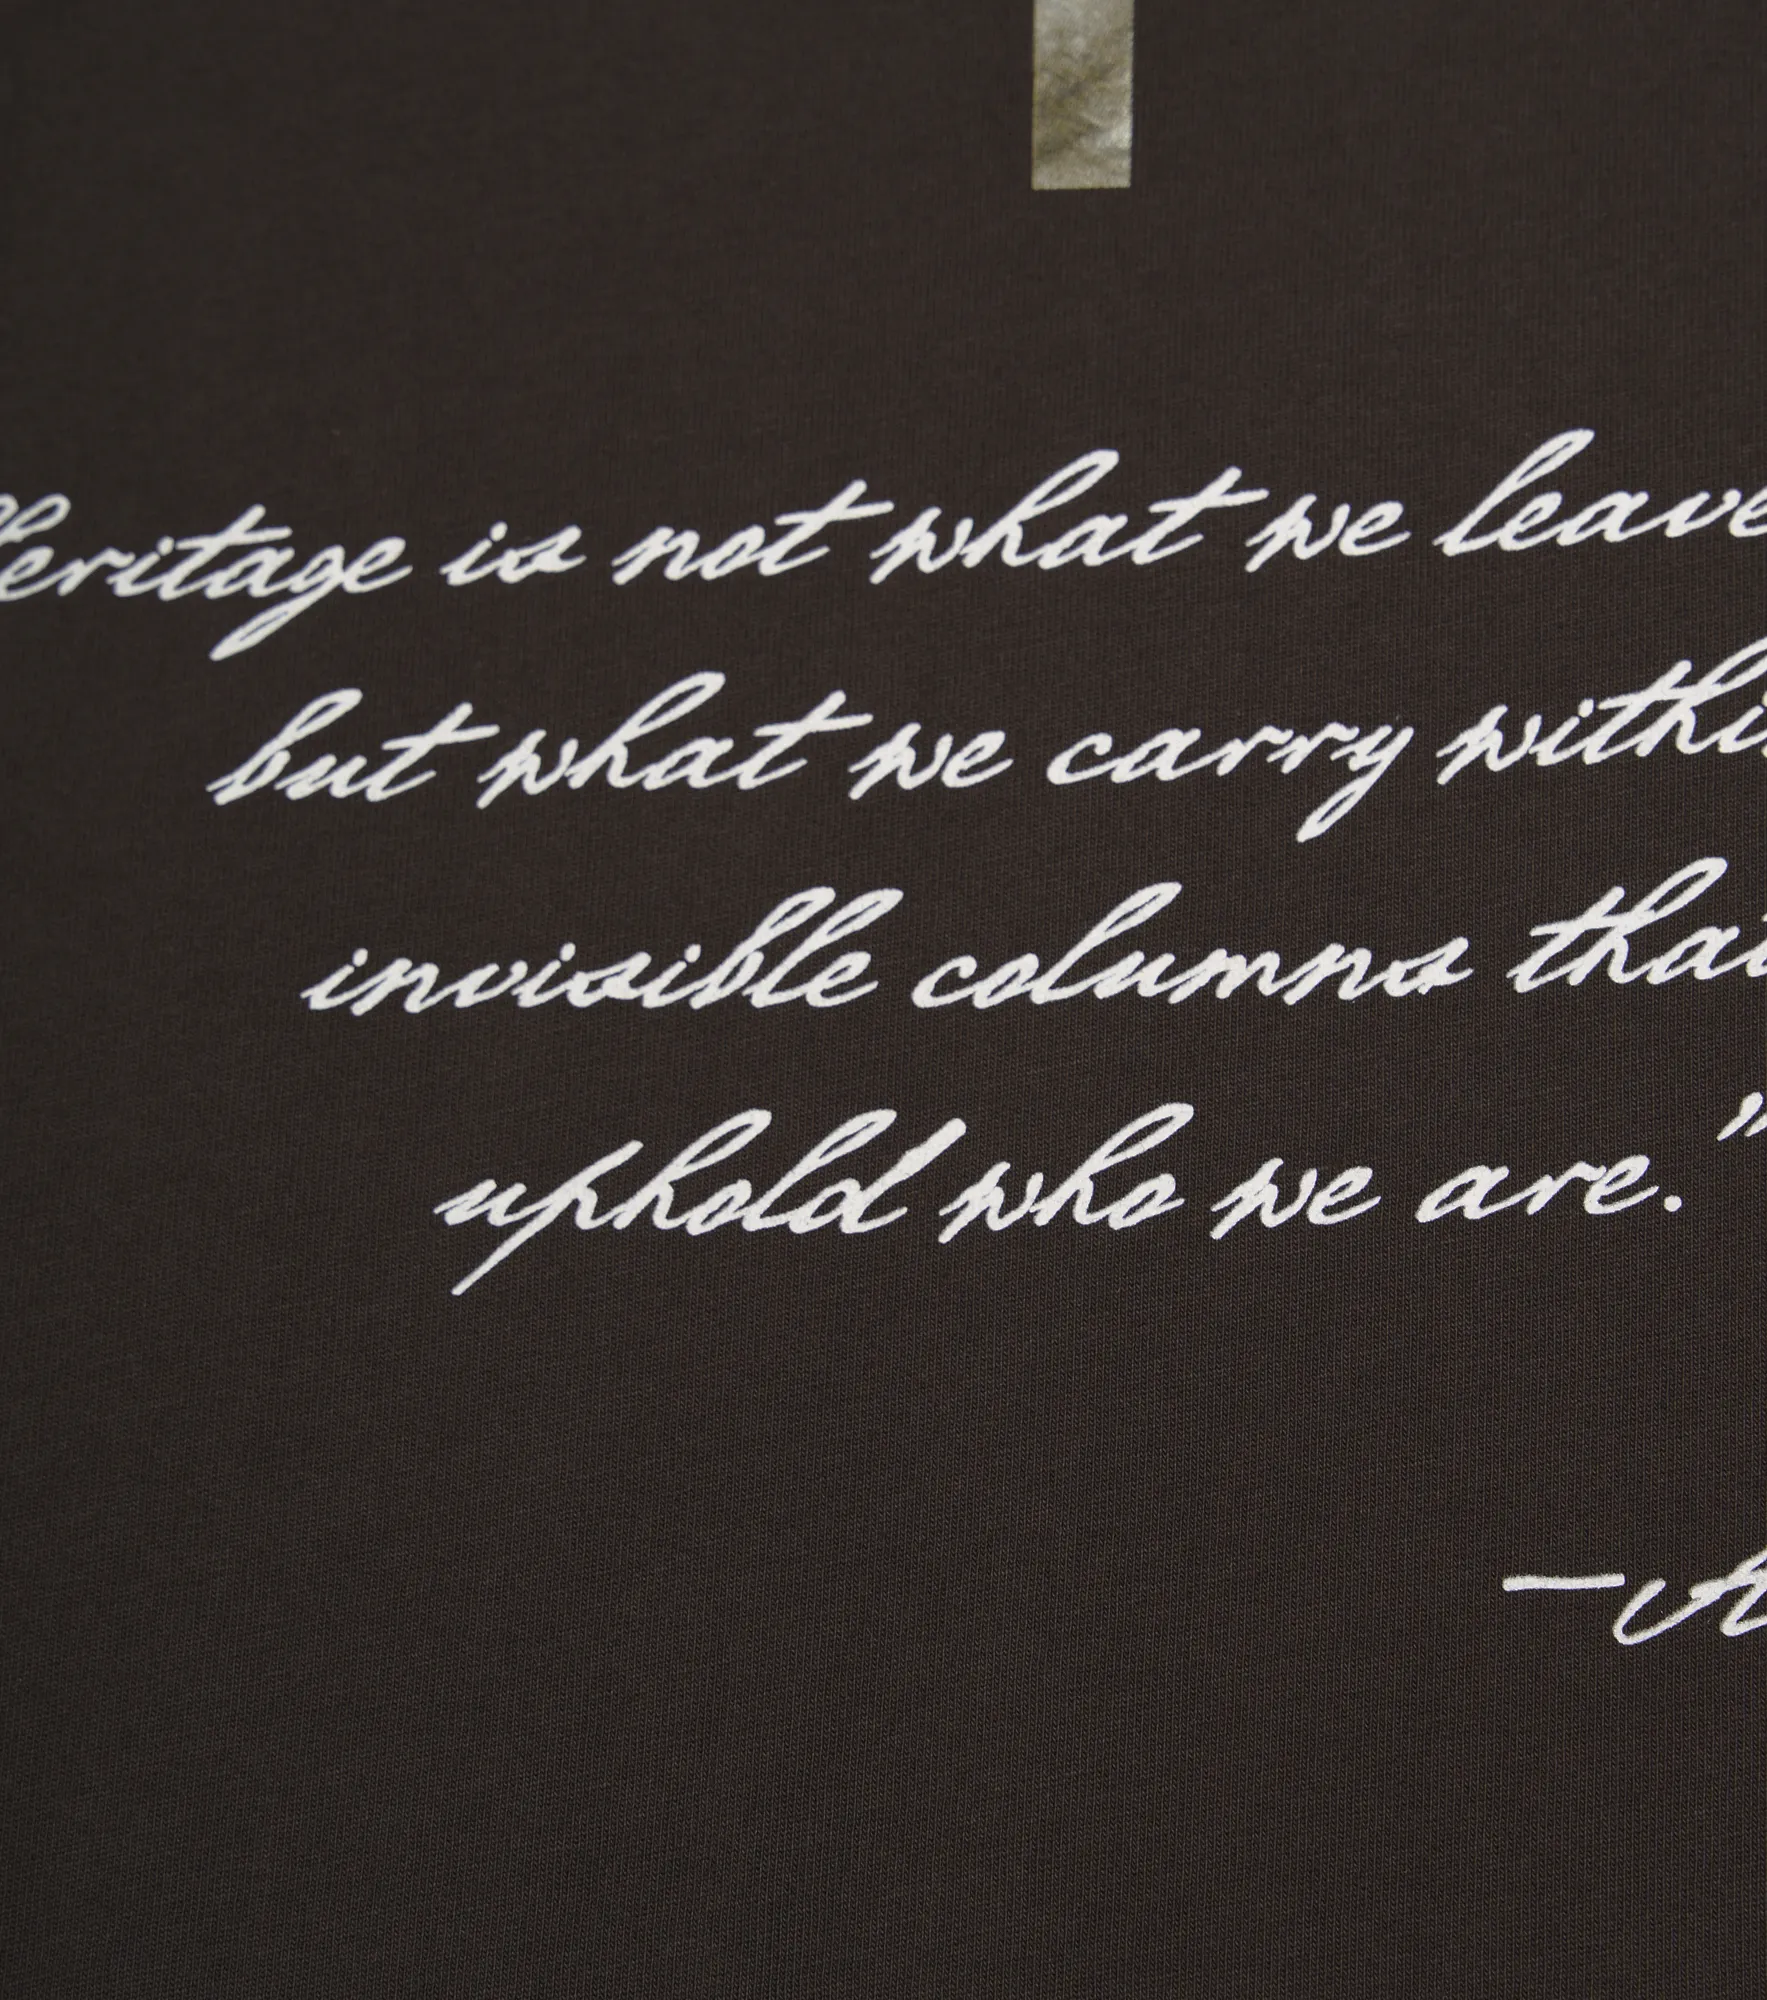 Heritage is not what we leave
but what we carry within
invisible columns that
uphold who we are."
—A